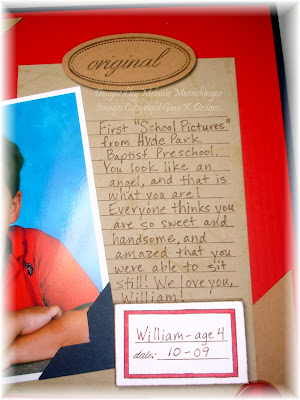 original
Designed by Melanie Muenchinger
Images Copyright Gina K Designs
First "School Pictures"
from Hyde Park
Baptist Preschool.
You look like an
angel, and that is
what you are!
Everyone thinks you
are so sweet and
handsome, and
amazed that you
were able to sit
still! We love you,
William!
William-age 4
date: 10-09